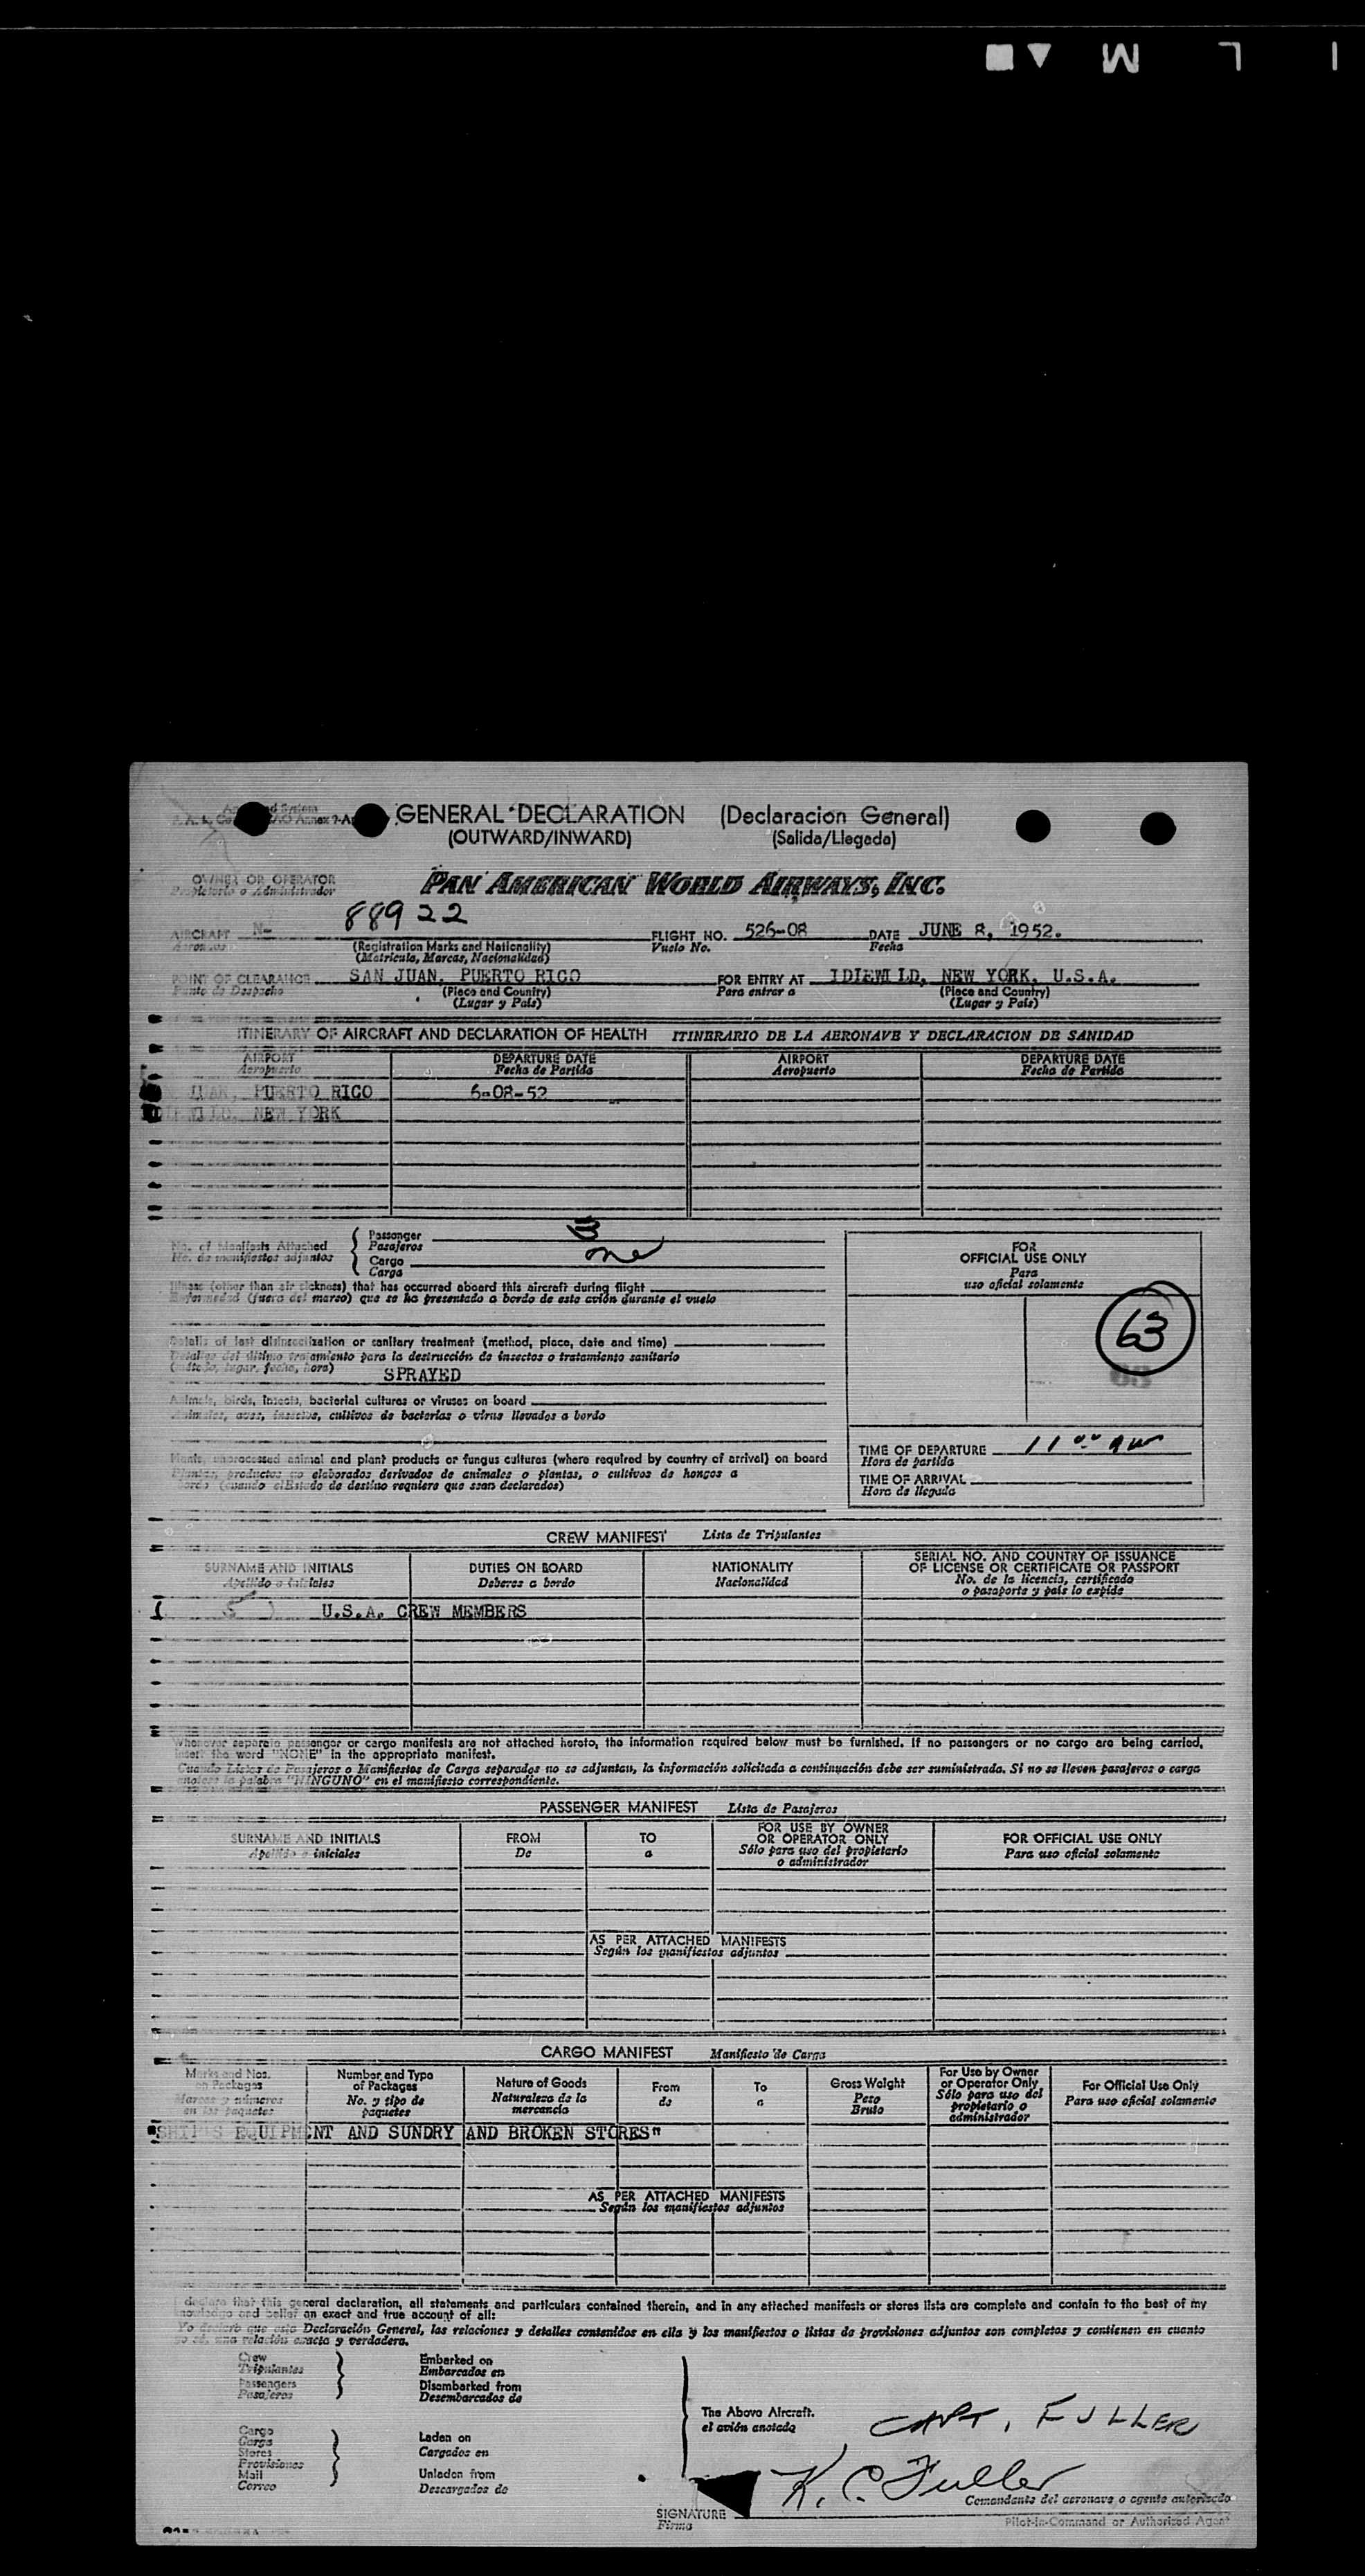 I L M
GENERAL DECLARATION (Declaracion General)
(OUTWARD/INWARD) (Salida/Llegada)
OWNER OR OPERATOR
Propietario o Administrador
PAN AMERICAN WORLD AIRWAYS, INC.
AIRCRAFT N- 88922 FLIGHT NO. 526-08 DATE JUNE 8, 1952.
Aeronave (Registration Marks and Nationality) Vuelo No. Fecha
(Matricula, Marcas, Nacionalidad)
POINT OF CLEARANCE SAN JUAN, PUERTO RICO FOR ENTRY AT IDIEWILD, NEW YORK, U.S.A.
Punto de Despacho (Place and Country) Para entrar a (Place and Country)
(Lugar y País) (Lugar y País)
ITINERARY OF AIRCRAFT AND DECLARATION OF HEALTH ITINERARIO DE LA AERONAVE Y DECLARACION DE SANIDAD
AIRPORT DEPARTURE DATE AIRPORT DEPARTURE DATE
Aeropuerto Fecha de Partida Aeropuerto Fecha de Partida
JUAN, PUERTO RICO 6-08-52
IDIEWILD, NEW YORK
No. of Manifests Attached Passenger
No. de manifiestos adjuntos Pasajeros
Cargo one
Carga
Illness (other than air sickness) that has occurred aboard this aircraft during flight
Enfermedad (fuera del mareo) que se ha presentado a bordo de este avión durante el vuelo
Details of last disinsectization or sanitary treatment (method, place, date and time)
Detalles del último tratamiento para la destrucción de insectos o tratamiento sanitario
(método, lugar, fecha, hora) SPRAYED
Animals, birds, insects, bacterial cultures or viruses on board
Animales, aves, insectos, cultivos de bacterias o virus llevados a bordo
Plants, unprocessed animal and plant products or fungus cultures (where required by country of arrival) on board
Plantas, productos no elaborados derivados de animales o plantas, o cultivos de hongos a
bordo (cuando el Estado de destino requiere que sean declarados)
FOR
OFFICIAL USE ONLY
Para
uso oficial solamente
63
63
TIME OF DEPARTURE 11 00 AM
Hora de partida
TIME OF ARRIVAL
Hora de llegada
CREW MANIFEST Lista de Tripulantes
SURNAME AND INITIALS DUTIES ON BOARD NATIONALITY SERIAL NO. AND COUNTRY OF ISSUANCE
OF LICENSE OR CERTIFICATE OR PASSPORT
Apellido o iniciales Deberes a bordo Nacionalidad No. de la licencia, certificado
o pasaporte y país lo expide
( 5 ) U.S.A. CREW MEMBERS
Whenever separate passenger or cargo manifests are not attached hereto, the information required below must be furnished. If no passengers or no cargo are being carried,
insert the word "NONE" in the appropriate manifest.
Cuando Listas de Pasajeros o Manifiestos de Carga separados no se adjuntan, la información solicitada a continuación debe ser suministrada. Si no se lleven pasajeros o carga
anótese la palabra "NINGUNO" en el manifiesto correspondiente.
PASSENGER MANIFEST Lista de Pasajeros
SURNAME AND INITIALS FROM TO FOR USE BY OWNER
OR OPERATOR ONLY FOR OFFICIAL USE ONLY
Apellido o iniciales De a Sólo para uso del propietario
o administrador Para uso oficial solamente
AS PER ATTACHED MANIFESTS
Según los manifiestos adjuntos
CARGO MANIFEST Manifiesto de Carga
Marks and Nos.
on Packages
Marcas y números
en los paquetes
Number and Type
of Packages
No. y tipo de
paquetes
Nature of Goods
Naturaleza de la
mercancía
From
de
To
a
Gross Weight
Peso
Bruto
For Use by Owner
or Operator Only
Sólo para uso del
propietario o
administrador
For Official Use Only
Para uso oficial solamente
"SHIP'S EQUIPMENT AND SUNDRY AND BROKEN STORES"
AS PER ATTACHED MANIFESTS
Según los manifiestos adjuntos
I declare that this general declaration, all statements and particulars contained therein, and in any attached manifests or stores lists are complete and contain to the best of my
knowledge and belief an exact and true account of all:
Yo declaro que esta Declaración General, las relaciones y detalles contenidos en ella y los manifiestos o listas de provisiones adjuntos son completos y contienen en cuanto
yo sé, una relación exacta y verdadera.
Crew Embarked on
Tripulantes Embarcados en
Passengers Disembarked from
Pasajeros Desembarcados de
The Above Aircraft.
el avión anotado
CAPT. FULLER
Cargo
Carga
Stores Laden on
Provisiones Cargados en
Mail Unladen from
Correo Descargados de
K. C. Fuller
Comandante del aeronave o agente autorizado
SIGNATURE
Firma
Pilot-in-Command or Authorized Agent